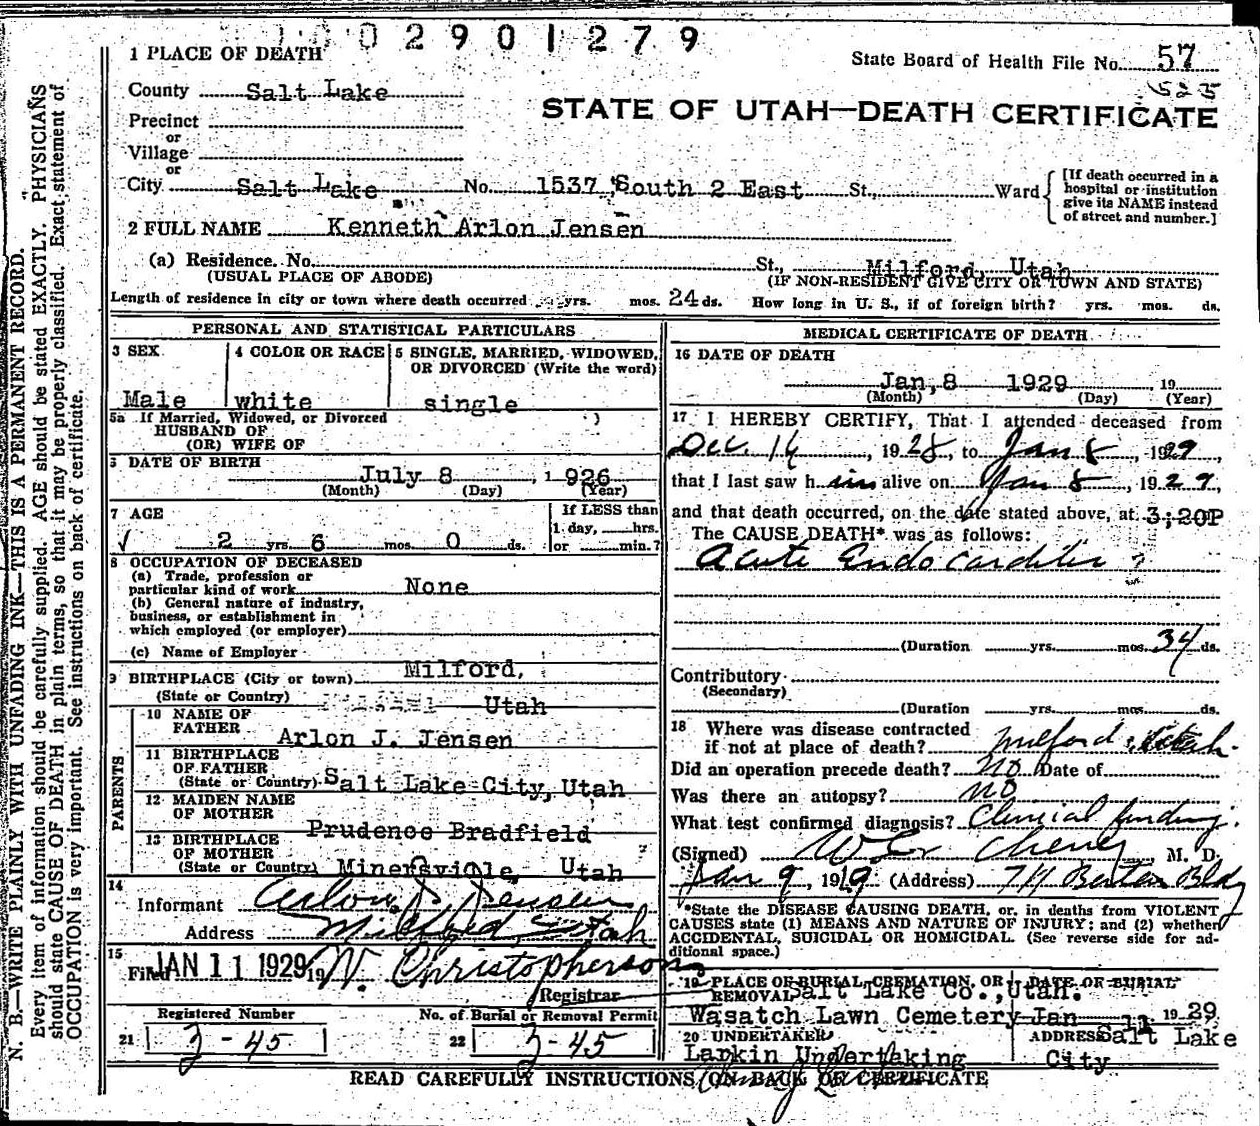 0 2 9 0 1 2 7 9
1 PLACE OF DEATH
State Board of Health File No. 57
County Salt Lake
525
STATE OF UTAH—DEATH CERTIFICATE
Precinct
or
Village
or
City Salt Lake No. 1537 South 2 East St., Ward
[If death occurred in a hospital or institution give its NAME instead of street and number.]
2 FULL NAME Kenneth Arlon Jensen
(a) Residence. No. St., Milford, Utah
(USUAL PLACE OF ABODE) (IF NON-RESIDENT GIVE CITY OR TOWN AND STATE)
Length of residence in city or town where death occurred yrs. mos. 24 ds. How long in U. S., if of foreign birth? yrs. mos. ds.
PERSONAL AND STATISTICAL PARTICULARS
3 SEX
Male
4 COLOR OR RACE
white
5 SINGLE, MARRIED, WIDOWED, OR DIVORCED (Write the word)
single
5a If Married, Widowed, or Divorced
HUSBAND OF
(OR) WIFE OF
6 DATE OF BIRTH
July 8 , 1926
(Month) (Day) (Year)
7 AGE
2 yrs 6 mos 0 ds.
If LESS than
1 day, hrs.
or min.?
8 OCCUPATION OF DECEASED
(a) Trade, profession or
particular kind of work None
(b) General nature of industry,
business, or establishment in
which employed (or employer)
(c) Name of Employer
9 BIRTHPLACE (City or town) Milford,
(State or Country) Utah
PARENTS
10 NAME OF FATHER
Arlon J. Jensen
11 BIRTHPLACE OF FATHER
(State or Country) Salt Lake City, Utah
12 MAIDEN NAME OF MOTHER
Prudence Bradfield
13 BIRTHPLACE OF MOTHER
(State or Country) Minersville, Utah
14
Informant Arlon J. Jensen
Address Milford Utah
15
Filed JAN 11 1929 19 W. Christopherson
Registrar
Registered Number
21 3-45
No. of Burial or Removal Permit
22 3-45
MEDICAL CERTIFICATE OF DEATH
16 DATE OF DEATH
Jan, 8 1929 19
(Month) (Day) (Year)
17 I HEREBY CERTIFY, That I attended deceased from
Dec. 14, 1928, to Jan 8, 1929,
that I last saw him alive on Jan 8, 1929,
and that death occurred, on the date stated above, at 3;20P
The CAUSE DEATH* was as follows:
Acute Endocarditis
(Duration yrs. mos. 34 ds.
Contributory
(Secondary)
(Duration yrs. mos. ds.
18 Where was disease contracted
if not at place of death? Milford, Utah.
Did an operation precede death? no Date of
Was there an autopsy? no
What test confirmed diagnosis? Clinical finding.
(Signed) Cheney M. D.
Jan 9, 1919 (Address) Bldg
*State the DISEASE CAUSING DEATH, or, in deaths from VIOLENT
CAUSES state (1) MEANS AND NATURE OF INJURY; and (2) whether
ACCIDENTAL, SUICIDAL OR HOMICIDAL. (See reverse side for ad-
ditional space.)
19 PLACE OF BURIAL, CREMATION, OR REMOVAL
Salt Lake Co., Utah.
Wasatch Lawn Cemetery
DATE OF BURIAL
Jan 11 1929
20 UNDERTAKER
Larkin Undertaking
ADDRESS Salt Lake
City
READ CAREFULLY INSTRUCTIONS ON BACK OF CERTIFICATE
N. B.—WRITE PLAINLY WITH UNFADING INK—THIS IS A PERMANENT RECORD.
Every item of information should be carefully supplied. AGE should be stated EXACTLY. PHYSICIANS
should state CAUSE OF DEATH in plain terms, so that it may be properly classified. Exact statement of
OCCUPATION is very important. See instructions on back of certificate.